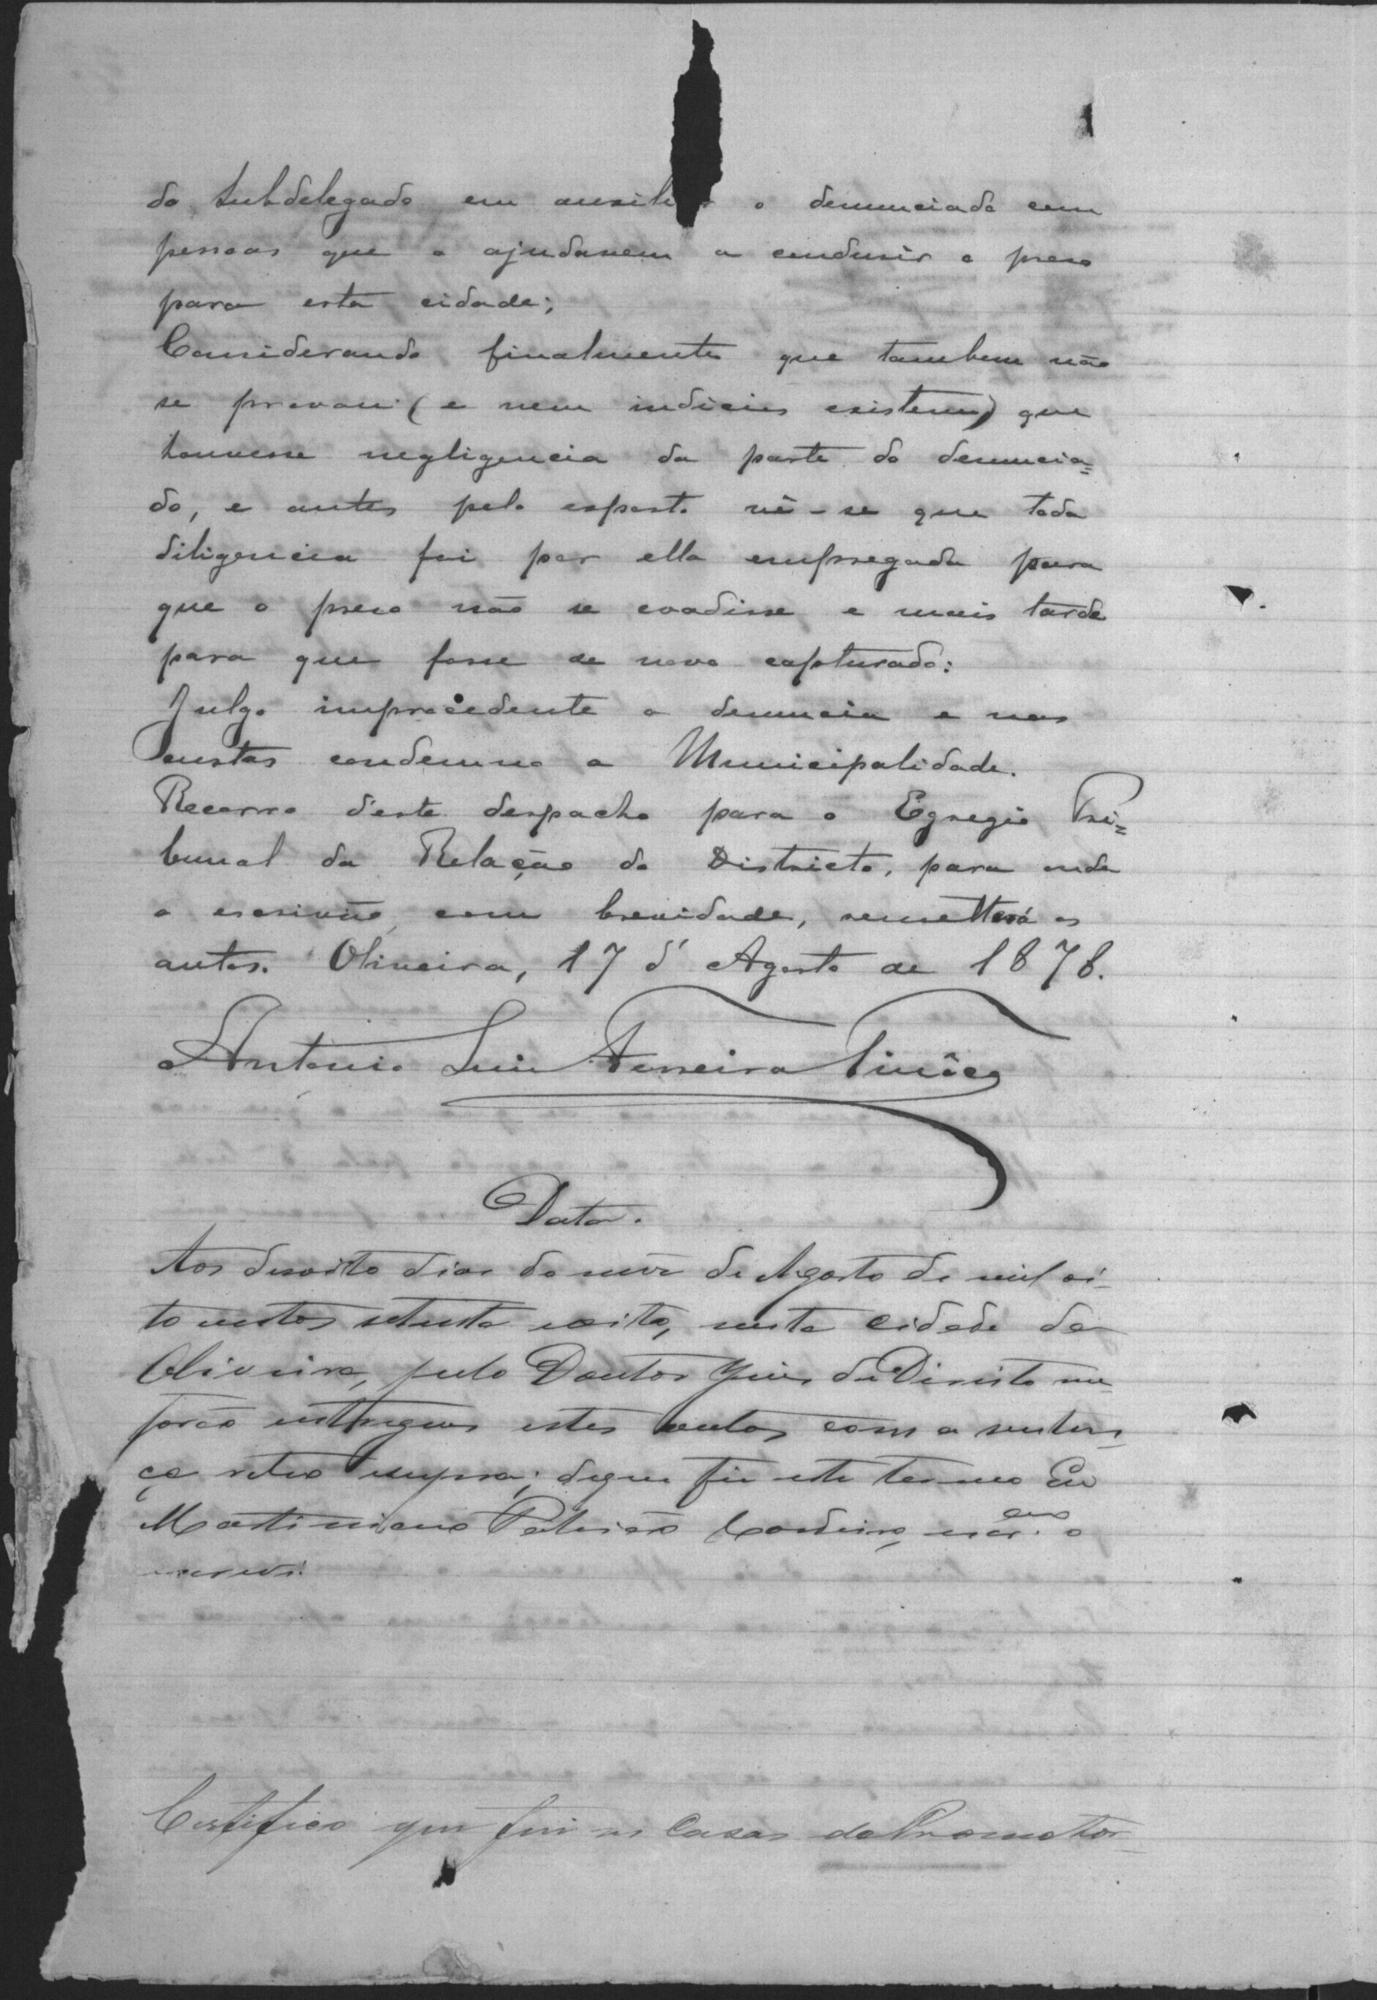 do subdelegado em ausiliar o denunciado com
pessoas que o ajudassem a condusir o preso
para esta cidade;
Considerando finalmente que tambem não
se provou (e nem indicios existem) que
houvesse negligencia da parte do denuncia=
do, e antes pelo esposto vê-se que toda
diligencia foi por elle empregada para
que o preso não se evadisse e mais tarde
para que fosse de novo capturado:
Julgo improcedente a denuncia e nas
custas condemno a Municipalidade.
Recorro d'este despacho para o Egregio Tri=
bunal da Relação do Districto, para onde
o escrivão, com brevidade, remetterá os
autos. Oliveira, 17 d' Agosto de 1878.
Antonio Luis Ferreira Tinôco
Data.
Aos desoito dias do mez de Agosto de mil oi-
to centos setenta e oito, nesta cidade de
Oliveira, pelo Doutor Juis de Direito me
forão entregues estes autos com a senten-
ça retro e supra; do que fis este termo Eu
Martiniano Patricio Cordeiro, escr.am o
escrevi.
Certifico que fui as Casas do Promotor